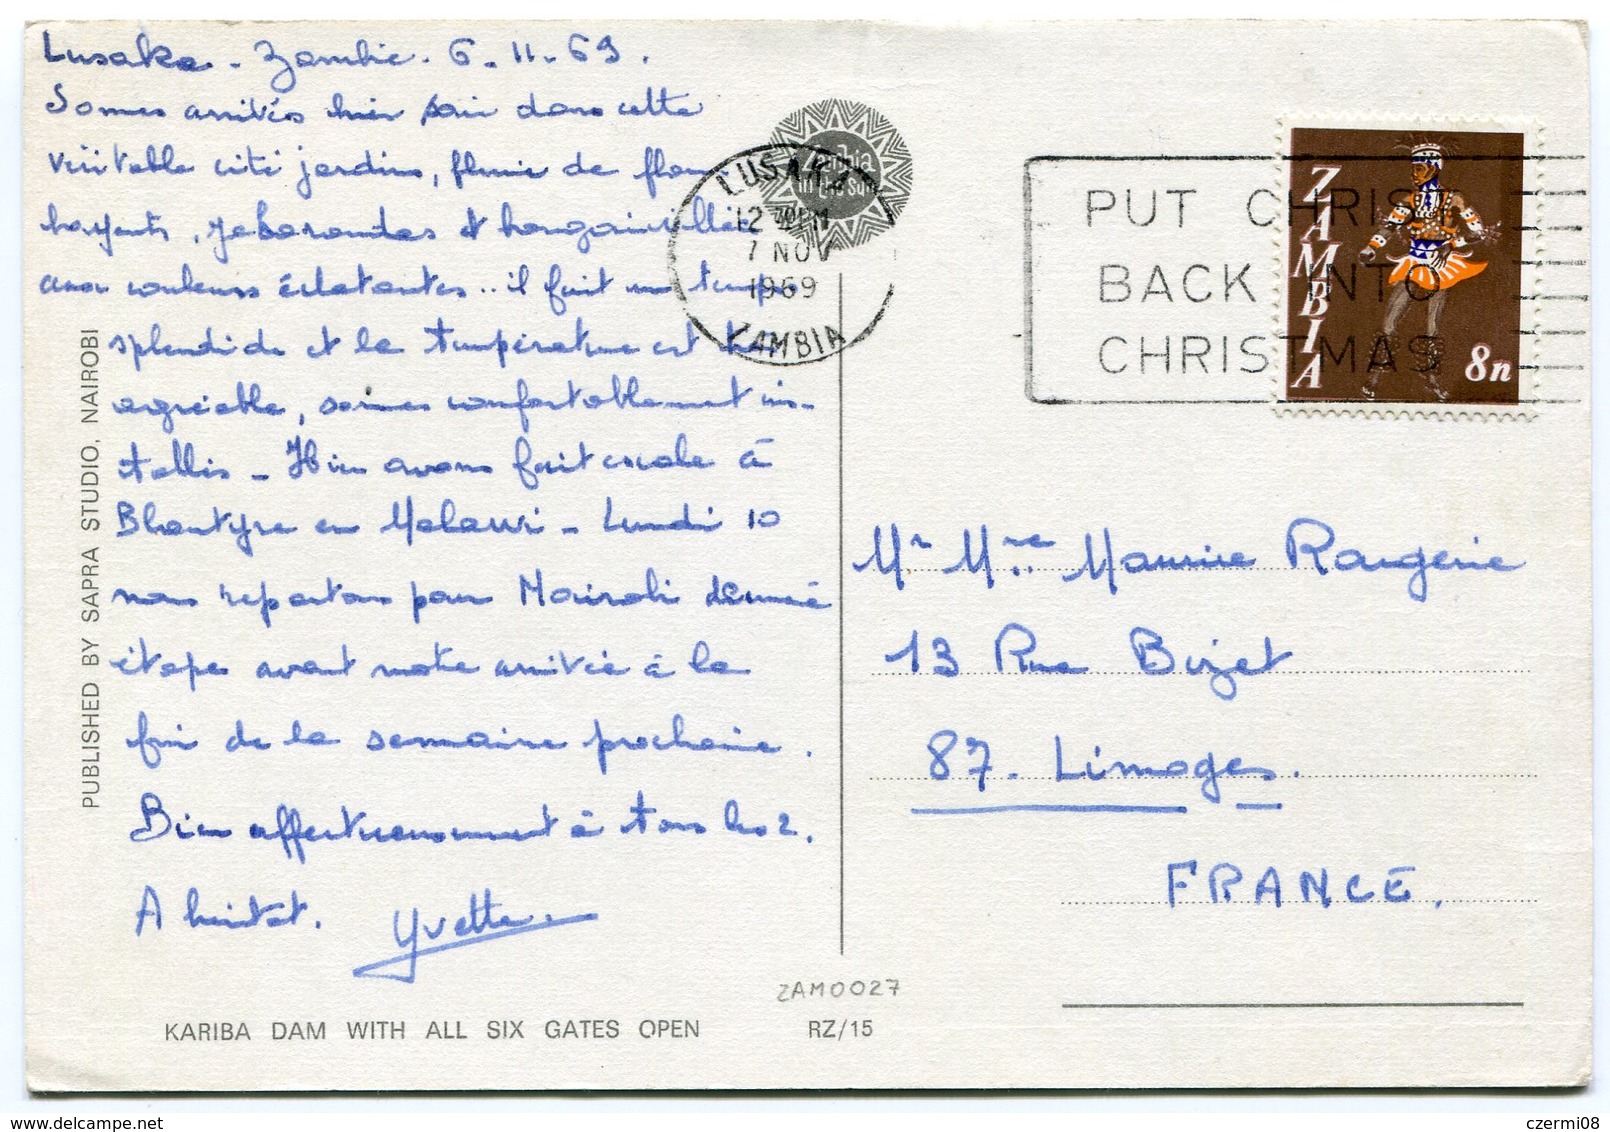 Lusaka - Zambie. 6.11.69.
Sommes arrivés hier soir dans cette
véritable cité jardins, pleine de
jakarandas et bougainvillées
aux couleurs éclatantes.. il fait un temps
splendide et la température est très
agréable, sommes confortablement ins-
tallés - Hier avons fait escale à
Blantyre en Malawi - Lundi 10
nous repartons pour Nairobi dernière
étape avant notre arrivée à la
fin de la semaine prochaine.
Bien affectueusement à tous les 2.
A bientôt. Yvette.
PUBLISHED BY SAPRA STUDIO, NAIROBI
KARIBA DAM WITH ALL SIX GATES OPEN
ZAM0027
RZ/15
Zambia
in the sun
LUSAKA
12 PM
7 NOV
1969
ZAMBIA
PUT CHRIST
BACK INTO
CHRISTMAS
ZAMBIA
8n
Mr Mme Maurice Rougerie
13 Rue Bizet
87. Limoges.
FRANCE.
delcampe.net
czermi08